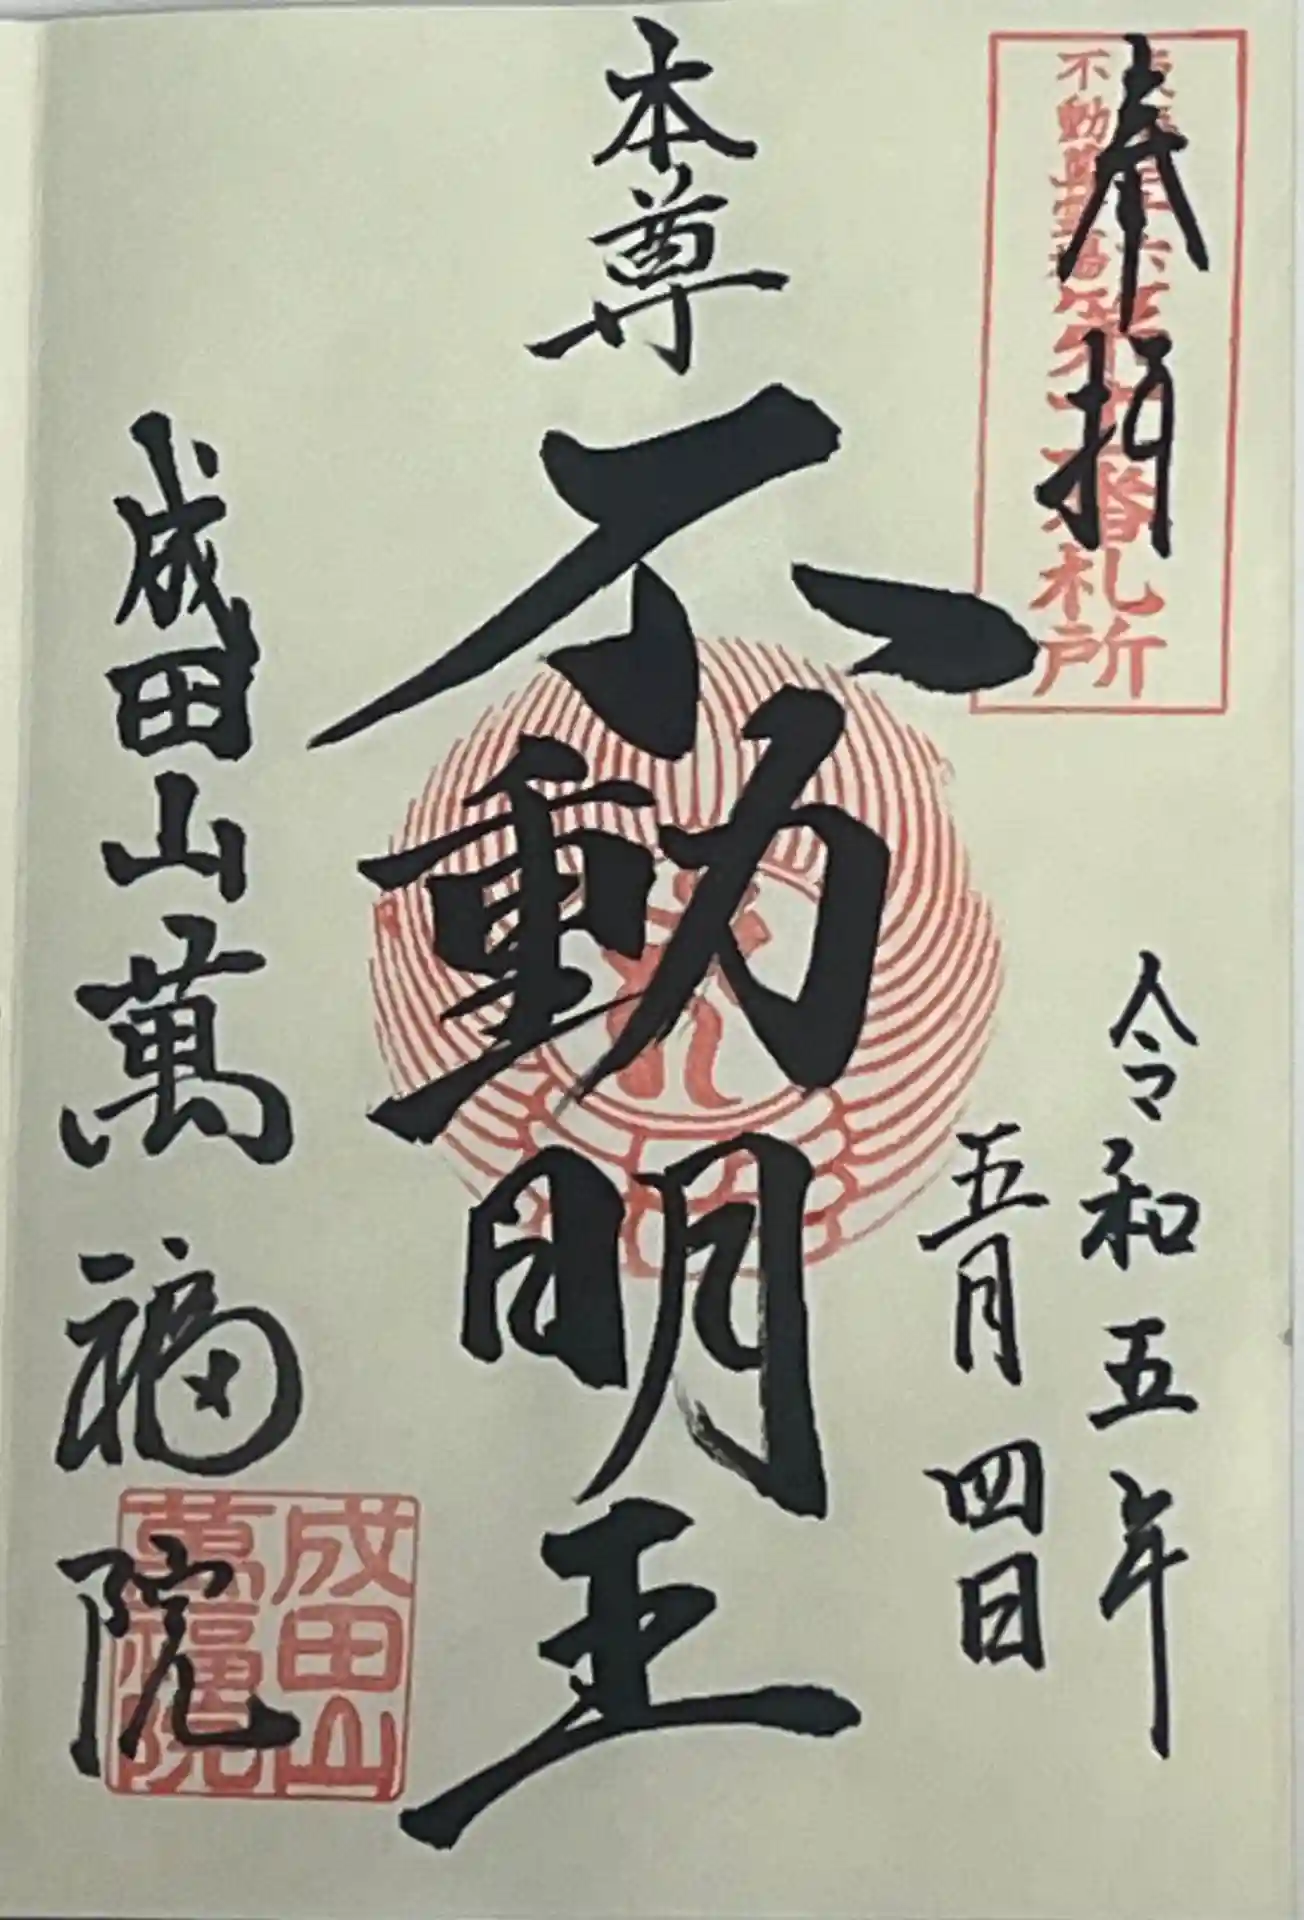 奉拝
不動尊霊場
第十番札所
令和五年
五月四日
本尊
不動明王
成田山萬福院
成田山
萬福院